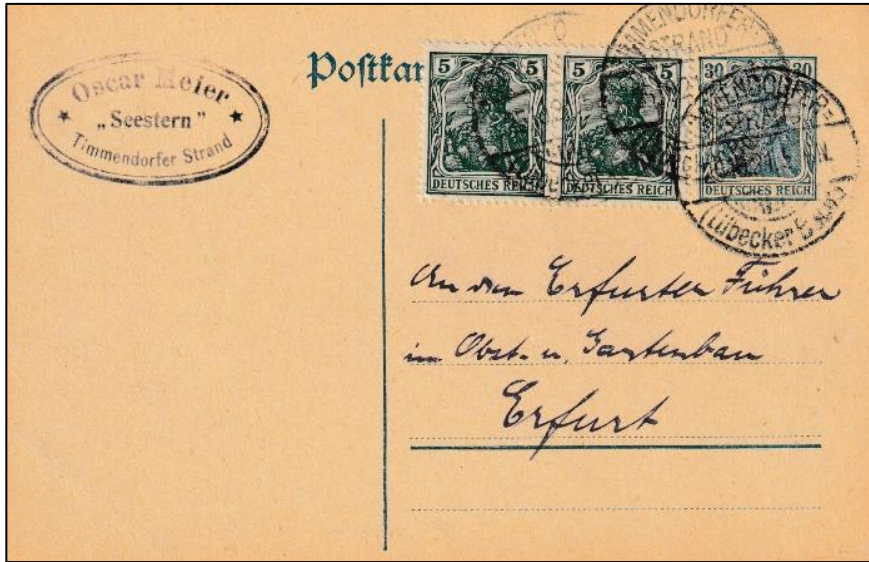 Oscar Meier
„Seestern"
Timmendorfer Strand
Postkar
5 5
DEUTSCHES REICH
5 5
DEUTSCHES REICH
30 30
REICH
TIMMENDORFER
STRAND
(Lübecker
An den Erfurter Führer
im Obst- u. Gartenbau
Erfurt